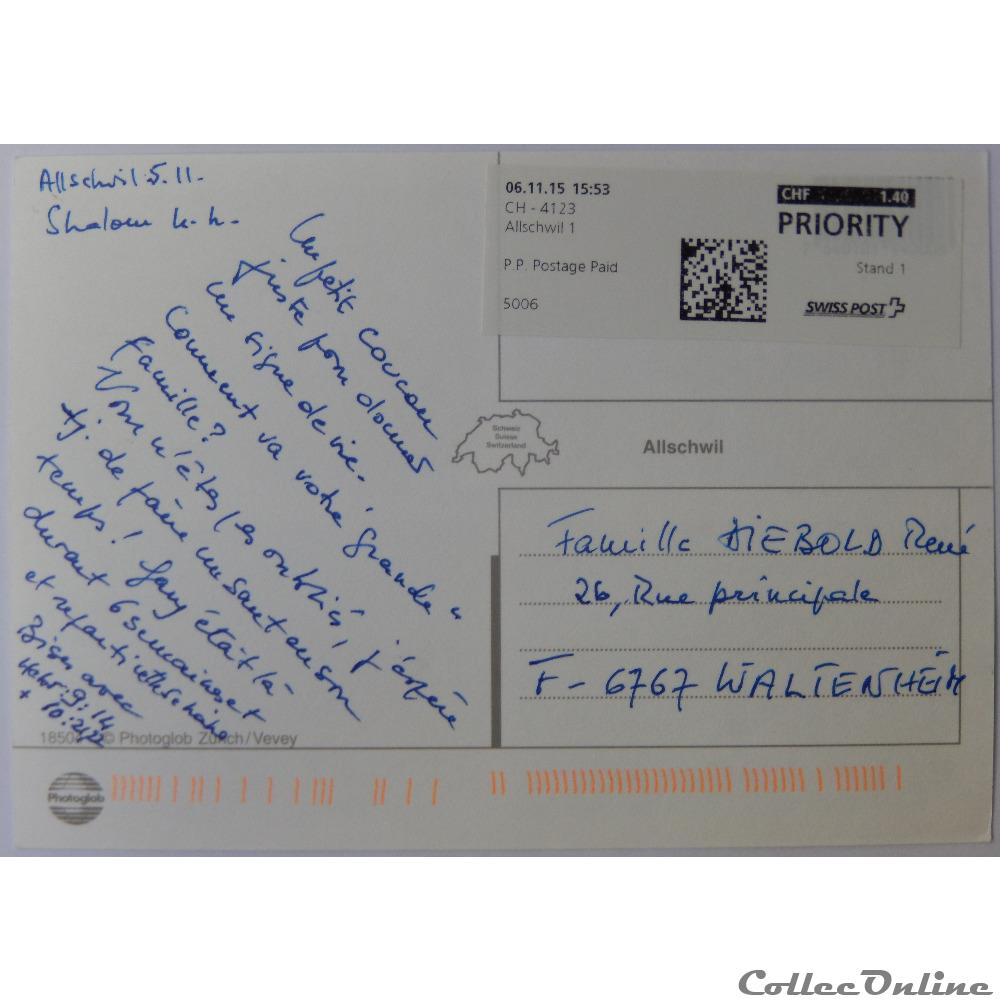 Allschwil 5.11.
Shalom
Un petit coucou
juste pour donner
un signe de vie.
Comment va votre "grande"
Famille?
Vous n'êtes pas oubliés, j'espère
tj. de faire un saut en son
temps! Gaby était là
durant 6 semaines et
et
Bises avec
Hebr. 9:14
+ 10:21/22
18504 © Photoglob Zürich/Vevey
Photoglob
06.11.15 15:53
CH - 4123
Allschwil 1
P.P. Postage Paid
5006
CHF 1.40
PRIORITY
Stand 1
SWISS POST
Schweiz
Suisse
Switzerland
Allschwil
Famille DIEBOLD René
26, Rue principale
F - 6767 WALTENHEIM
CollecOnline